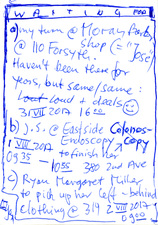 WAITING FOR
a) my turn @ Moray Barber
shop (= "Jose")
@ 110 Forsyte.
Haven't been there for
years, but same/same:
loud + deals
31 VIII 2017 16
b) J.S. @ Eastside Colonos-
Endoscopy -copy
1 VIII 2017 to finish her
09 35 – 1055 380 2nd Ave
c) Ryan Margaret Miller
to pick up her left-behind
clothing @ 319 2 VIII 2017
09 00